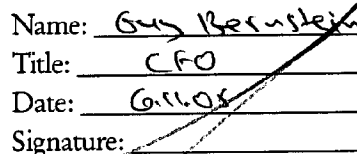 Name: Guy Bernstein
Title: CFO
Date: 6.11.05
Signature: